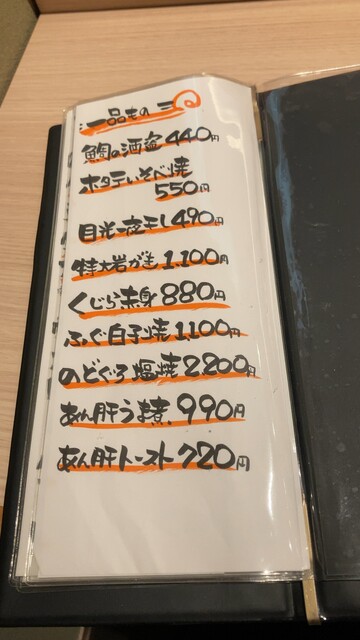 一品もの 三
鯛の酒盗 440円
ホタテいそべ焼
550円
目光一夜干し 490円
特大岩がき 1,100円
くじら赤身 880円
ふぐ白子焼 1,100円
のどぐろ塩焼 2200円
あん肝うま煮 990円
あん肝トースト 720円